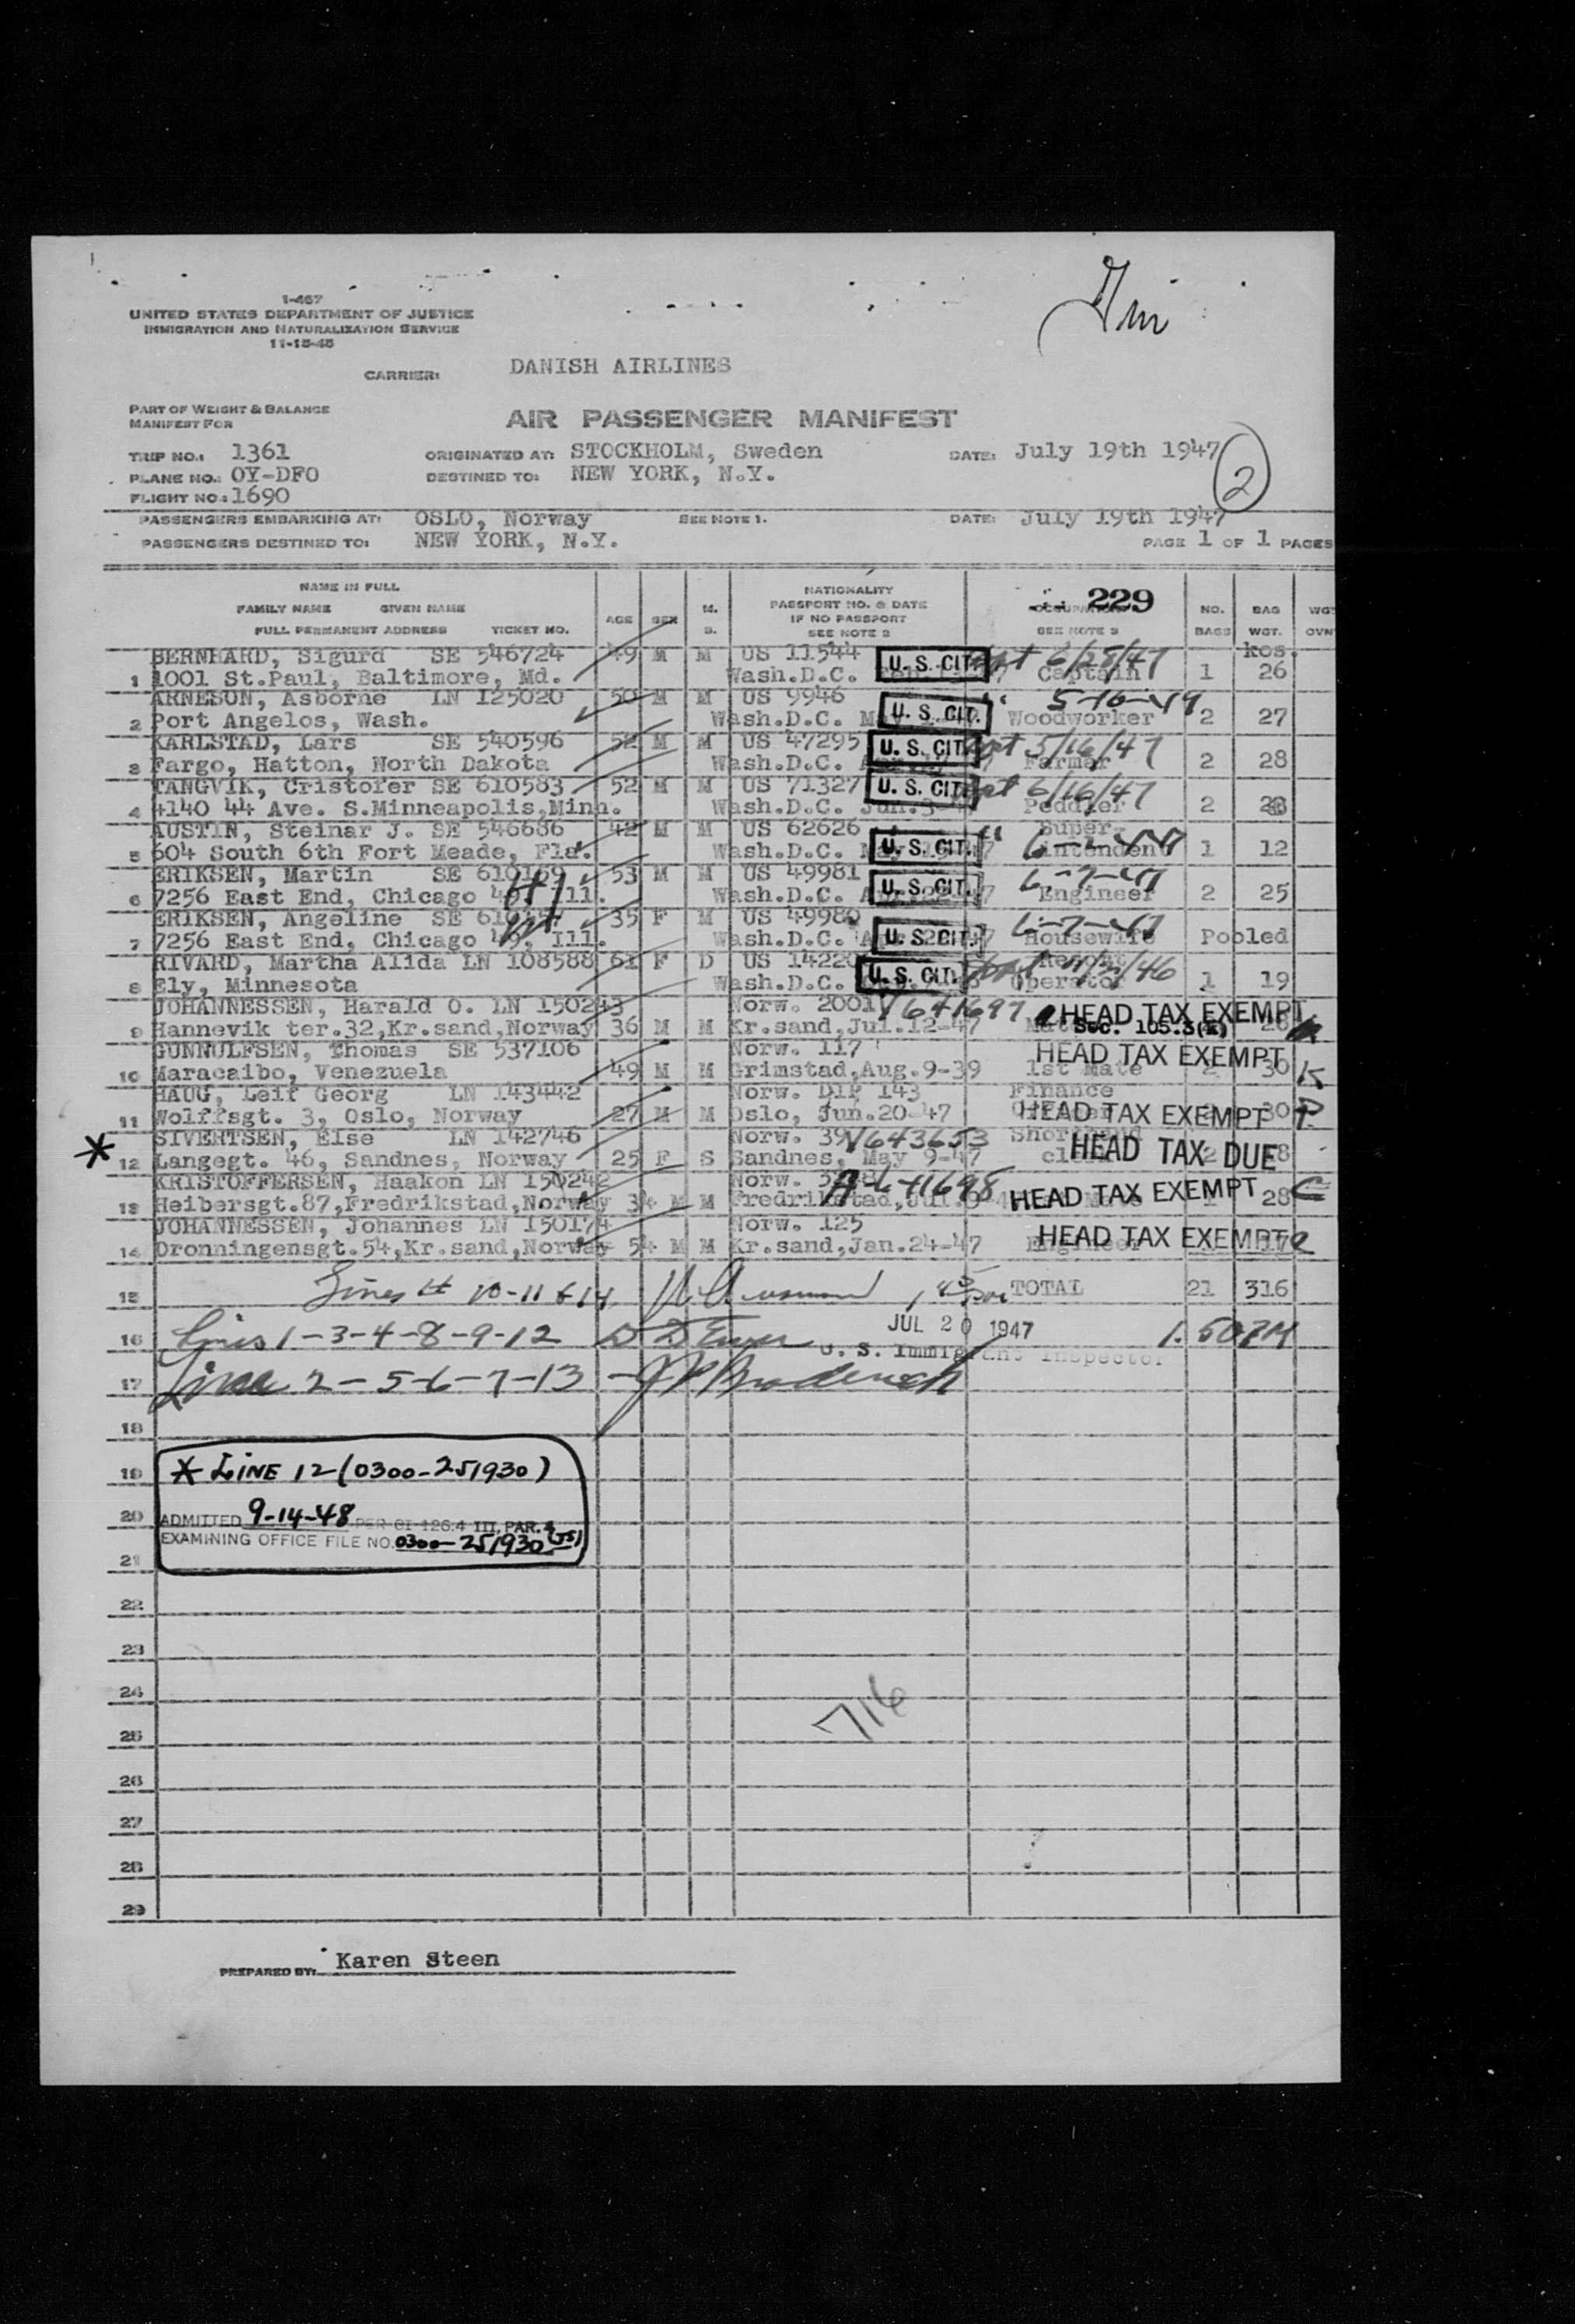 1-467
UNITED STATES DEPARTMENT OF JUSTICE
IMMIGRATION AND NATURALIZATION SERVICE
11-15-45
CARRIER: DANISH AIRLINES
PART OF WEIGHT & BALANCE
MANIFEST FOR
AIR PASSENGER MANIFEST
TRIP NO.: 1361 ORIGINATED AT: STOCKHOLM, Sweden DATE: July 19th 1947
PLANE NO.: OY-DFO DESTINED TO: NEW YORK, N.Y.
2
FLIGHT NO.: 1690
PASSENGERS EMBARKING AT: OSLO, Norway SEE NOTE 1. DATE: July 19th 1947
PASSENGERS DESTINED TO: NEW YORK, N.Y. PAGE 1 OF 1 PAGES
NAME IN FULL
FAMILY NAME GIVEN NAME
FULL PERMANENT ADDRESS TICKET NO.
AGE SEX M. S.
NATIONALITY
PASSPORT NO. & DATE
IF NO PASSPORT
SEE NOTE 2
229
OCCUPATION
SEE NOTE 3
NO. BAGS
BAG WGT.
kos.
BERNHARD, Sigurd SE 546724 49 M M US 11544 U. S. CIT. 6/28/47
1 1001 St.Paul, Baltimore, Md. Wash.D.C. Captain 1 26
ARNESON, Asborne LN 125020 50 M M US 9946 U. S. CIT. " 5-16-49
2 Port Angelos, Wash. Wash.D.C. Woodworker 2 27
KARLSTAD, Lars SE 540596 52 M M US 47295 U. S. CIT. 5/16/47
3 Fargo, Hatton, North Dakota Wash.D.C. Farmer 2 28
TANGVIK, Cristofer SE 610583 52 M M US 71327 U. S. CIT. 6/16/47
4 4140 44 Ave. S.Minneapolis,Minn. Wash.D.C. Jun.3 Peddler 2
AUSTIN, Steinar J. SE 546686 42 M M US 62626 Super-
5 604 South 6th Fort Meade, Fla. Wash.D.C. U. S. CIT. " intendent 1 12
ERIKSEN, Martin SE 610169 53 M M US 49981
6 7256 East End, Chicago Ill. Wash.D.C. U. S. CIT. Engineer 2 25
ERIKSEN, Angeline SE 35 F M US 49980
7 7256 East End, Chicago 49, Ill. Wash.D.C. U. S. CIT. Housewife Pooled
RIVARD, Martha Alida LN 108588 61 F D US 14220
8 Ely, Minnesota Wash.D.C. U. S. CIT. Operator 1 19
JOHANNESSEN, Harald O. LN 150243 Norw. 2001 V641697 HEAD TAX EXEMPT
9 Hannevik ter.32,Kr.sand,Norway 36 M M Kr.sand,Jul.12-47 Sec. 105.3(k)
GUNNULFSEN, Thomas SE 537106 Norw. 117 HEAD TAX EXEMPT
10 Maracaibo, Venezuela 49 M M Grimstad,Aug.9-39 1st Mate 2 36
HAUG, Leif Georg LN 143442 Norw. DIP 143 Finance
11 Wolffsgt. 3, Oslo, Norway 27 M M Oslo, Jun.20-47 HEAD TAX EXEMPT 30
SIVERTSEN, Else LN 142746 Norw. 39 V643653
* 12 Langegt. 46, Sandnes, Norway 25 F S Sandnes, May 9-47 HEAD TAX DUE
KRISTOFFERSEN, Haakon LN 150242 Norw.
13 Heibersgt.87,Fredrikstad,Norway 34 M M Fredrikstad,Jul. HEAD TAX EXEMPT 28
JOHANNESSEN, Johannes LN 150174 Norw. 125
14 Dronningensgt.54,Kr.sand,Norway 54 M M Kr.sand,Jan.24-47 Engineer HEAD TAX EXEMPT
15 Lines # 10-11 & 14 TOTAL 21 316
16 Lines 1-3-4-8-9-12 JUL 20 1947 1.50PM
U. S. Immigrant Inspector
17 Line 2-5-6-7-13
18
19 * LINE 12 (0300-251930)
20 ADMITTED 9-14-48 PER OI 126.4 III, PAR. 4
EXAMINING OFFICE FILE NO. 0300-251930
21
22
23
24
716
25
26
27
28
29
PREPARED BY: Karen Steen